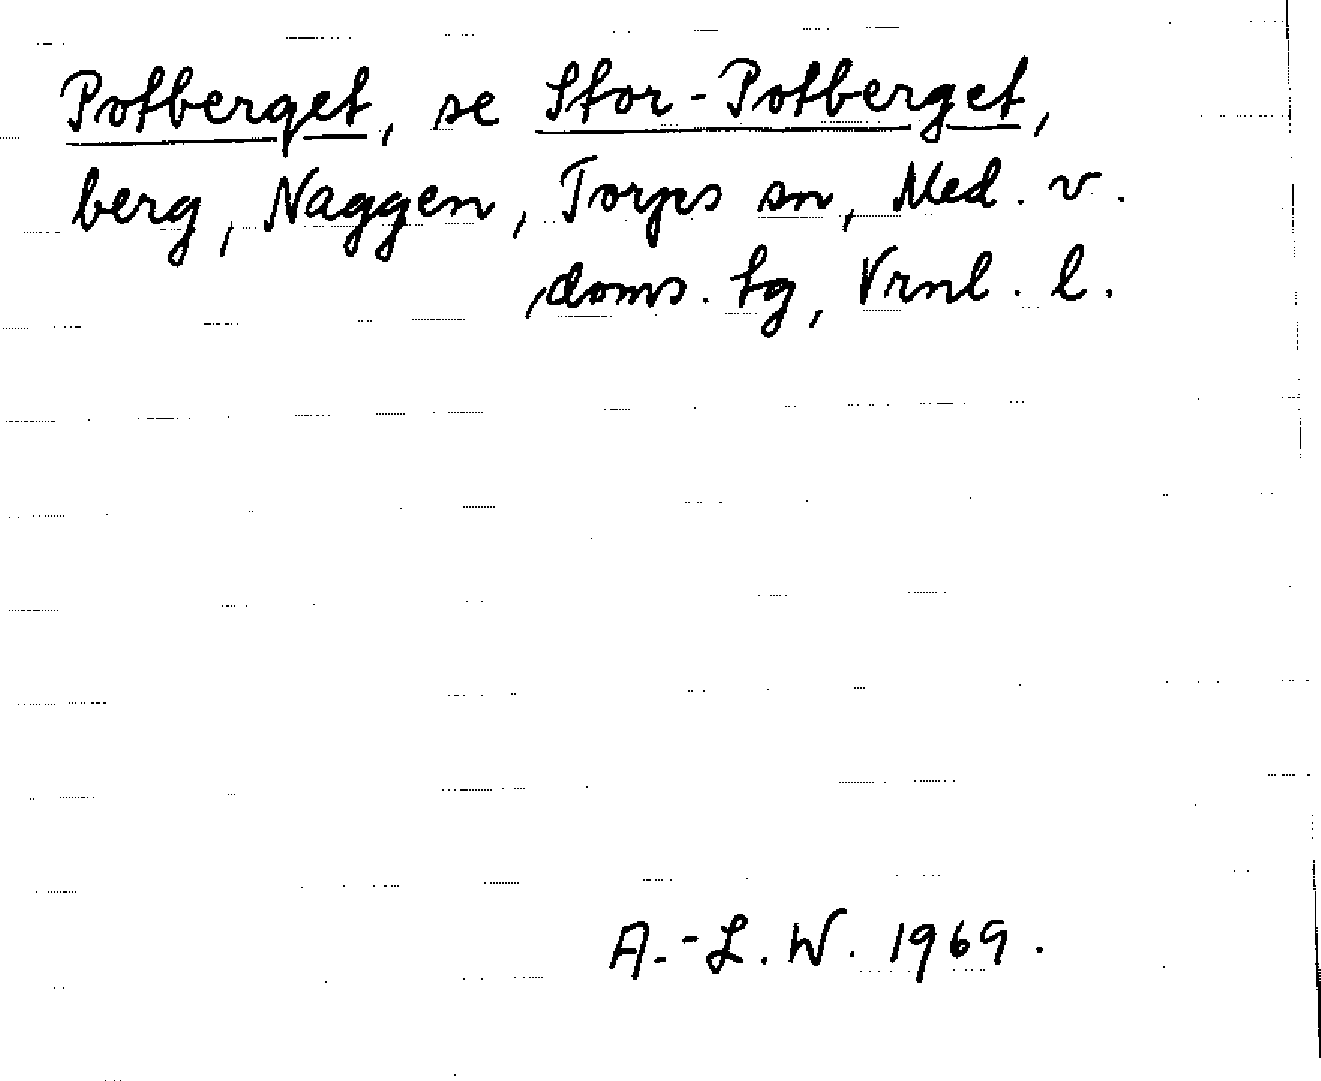 Potberget, se Stor-Potberget,
berg, Naggen, Torps sn, Med. v.
doms. tg, Vrnl. l.
A.-L. W. 1969.